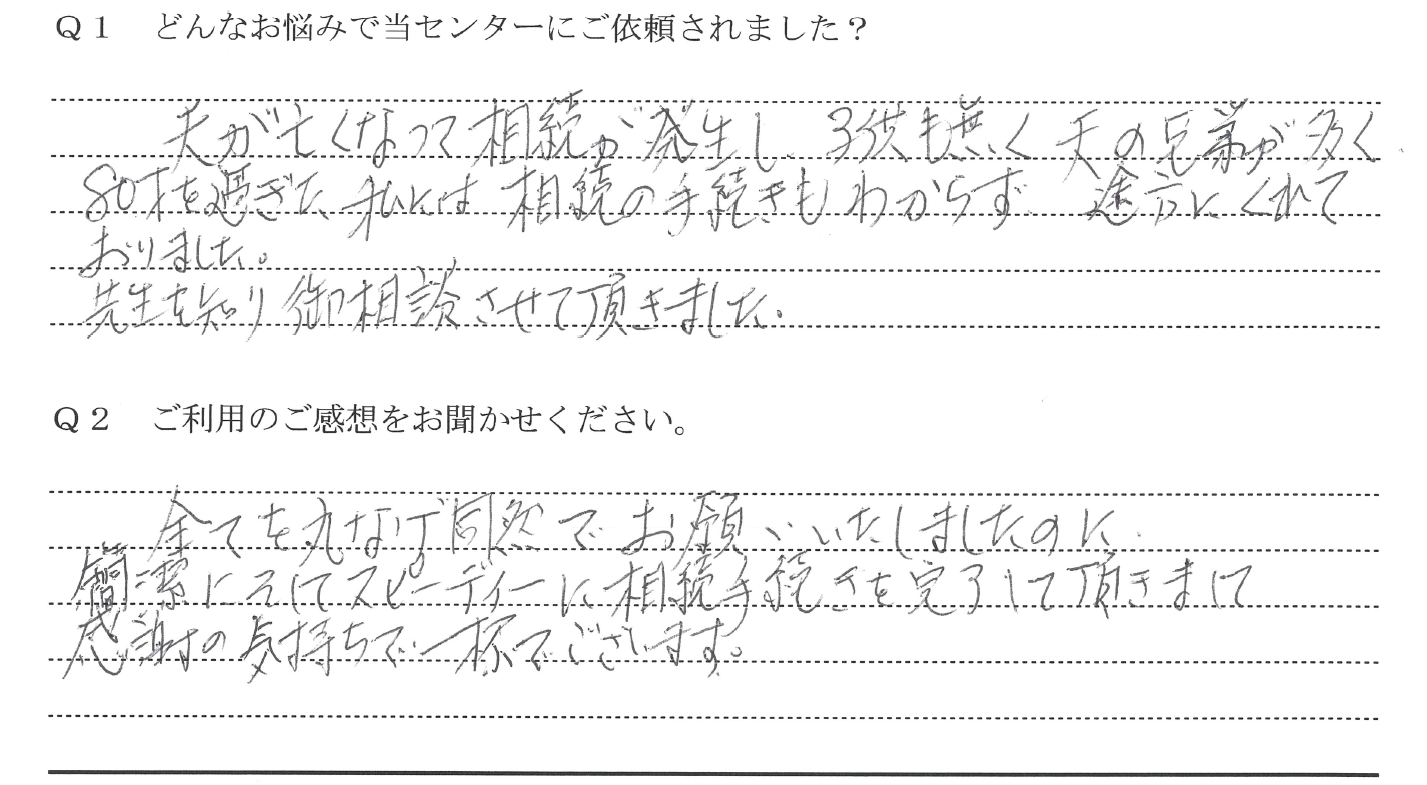 Q1 どんなお悩みで当センターにご依頼されました?
夫が亡くなって相続が発生し、子供も無く夫の兄弟が多く
80才を過ぎた私には相続の手続きもわからず 途方にくれて
おりました。
先生を知り御相談させて頂きました。
Q2 ご利用のご感想をお聞かせください。
全てを丸なげ同然でお願いいたしましたのに、
簡潔にそしてスピーディーに相続手続きを完了して頂きまして
感謝の気持ちで一杯でございます。